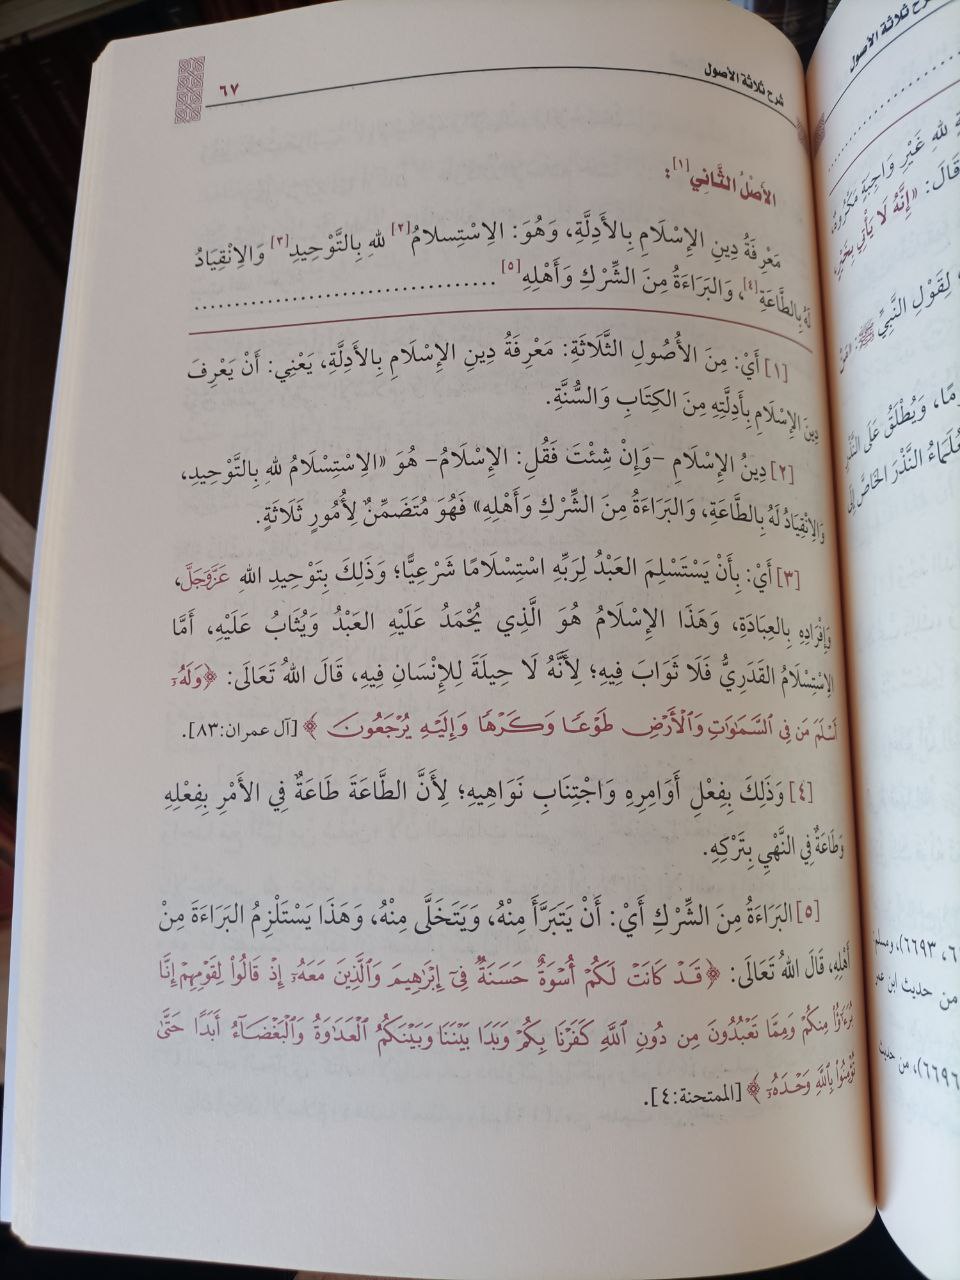 شرح ثلاثة الأصول
٦٧
الأَصْلُ الثَّانِي[١]:
مَعْرِفَةُ دِينِ الإِسْلَامِ بِالأَدِلَّةِ، وَهُوَ: الِاسْتِسلامُ[٢] للهِ بِالتَّوْحِيدِ[٣] وَالِانْقِيَادُ
لَهُ بِالطَّاعَةِ[٤]، وَالبَرَاءَةُ مِنَ الشِّرْكِ وَأَهْلِهِ[٥] ....................................
[١] أَيْ: مِنَ الأُصُولِ الثَّلَاثَةِ: مَعْرِفَةُ دِينِ الإِسْلَامِ بِالأَدِلَّةِ، يَعْنِي: أَنْ يَعْرِفَ
دِينَ الإِسْلَامِ بِأَدِلَّتِهِ مِنَ الكِتَابِ وَالسُّنَّةِ.
[٢] دِينُ الإِسْلَامِ -وَإِنْ شِئْتَ فَقُلِ: الإِسْلَامُ- هُوَ «الِاسْتِسْلَامُ للهِ بِالتَّوْحِيدِ،
وَالِانْقِيَادُ لَهُ بِالطَّاعَةِ، وَالبَرَاءَةُ مِنَ الشِّرْكِ وَأَهْلِهِ» فَهُوَ مُتَضَمِّنٌ لِأُمُورٍ ثَلَاثَةٍ.
[٣] أَيْ: بِأَنْ يَسْتَسْلِمَ العَبْدُ لِرَبِّهِ اسْتِسْلَامًا شَرْعِيًّا؛ وَذَلِكَ بِتَوْحِيدِ اللهِ عَزَّوَجَلَّ،
وَإِفْرَادِهِ بِالعِبَادَةِ، وَهَذَا الإِسْلَامُ هُوَ الَّذِي يُحْمَدُ عَلَيْهِ العَبْدُ وَيُثَابُ عَلَيْهِ، أَمَّا
الِاسْتِسْلَامُ القَدَرِيُّ فَلَا ثَوَابَ فِيهِ؛ لِأَنَّهُ لَا حِيلَةَ لِلإِنْسَانِ فِيهِ، قَالَ اللهُ تَعَالَى: ﴿وَلَهُۥٓ
أَسْلَمَ مَن فِي ٱلسَّمَٰوَٰتِ وَٱلْأَرْضِ طَوْعًا وَكَرْهًا وَإِلَيْهِ يُرْجَعُونَ﴾ [آل عمران:٨٣].
[٤] وَذَلِكَ بِفِعْلِ أَوَامِرِهِ وَاجْتِنَابِ نَوَاهِيهِ؛ لِأَنَّ الطَّاعَةَ طَاعَةٌ فِي الأَمْرِ بِفِعْلِهِ
وَطَاعَةٌ فِي النَّهْيِ بِتَرْكِهِ.
[٥] البَرَاءَةُ مِنَ الشِّرْكِ أَيْ: أَنْ يَتَبَرَّأَ مِنْهُ، وَيَتَخَلَّى مِنْهُ، وَهَذَا يَسْتَلْزِمُ البَرَاءَةَ مِنْ
أَهْلِهِ، قَالَ اللهُ تَعَالَى: ﴿قَدْ كَانَتْ لَكُمْ أُسْوَةٌ حَسَنَةٌ فِيٓ إِبْرَٰهِيمَ وَٱلَّذِينَ مَعَهُۥٓ إِذْ قَالُواْ لِقَوْمِهِمْ إِنَّا
بُرَءَٰٓؤُاْ مِنكُمْ وَمِمَّا تَعْبُدُونَ مِن دُونِ ٱللَّهِ كَفَرْنَا بِكُمْ وَبَدَا بَيْنَنَا وَبَيْنَكُمُ ٱلْعَدَٰوَةُ وَٱلْبَغْضَآءُ أَبَدًا حَتَّىٰ
تُؤْمِنُواْ بِٱللَّهِ وَحْدَهُۥٓ﴾ [الممتحنة:٤].
شرح ثلاثة الأصول
للهِ غَيْرُ وَاجِبَةٍ مَكْرُوهٌ،
قَالَ: «إِنَّهُ لَا يَأْتِي بِخَيْرٍ،
لِقَوْلِ النَّبِيِّ ﷺ: «مَنْ
وَيُطْلَقُ عَلَى النَّذْرِ
النَّذْرَ الخَاصَّ
٦٦٩٣)، ومسلم
من حديث ابن عمر
٦٦٩٦)، من حديث